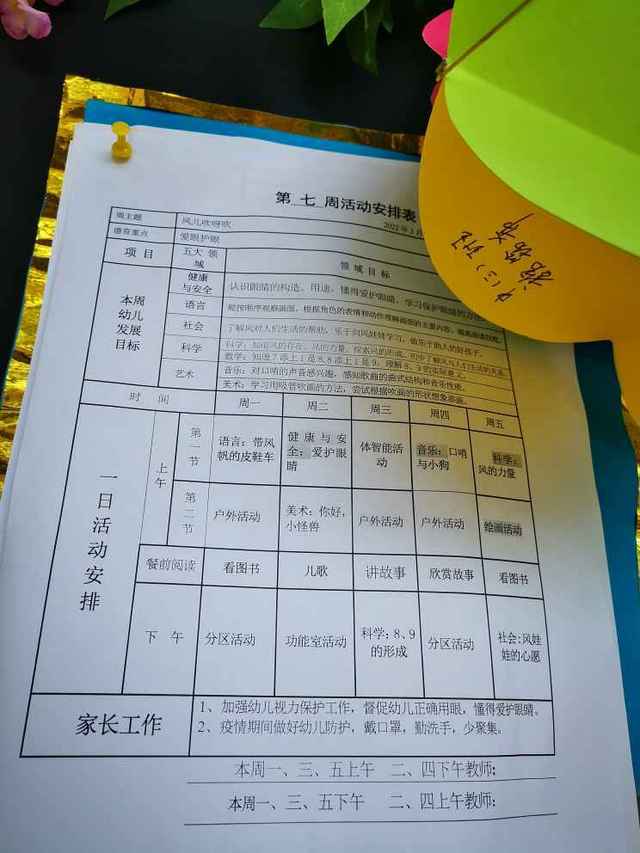 第 七 周活动安排表
2022年3月
周主题 风儿吹呀吹
德育重点 爱眼护眼
项目 五大领域 领域目标
本周幼儿发展目标
健康与安全 认识眼睛的构造、用途，懂得爱护眼睛，学习保护眼睛的方
语言 能按顺序观察画面，根据角色的表情和动作理解画面的主要内容，
社会 了解风对人们生活的帮助，乐于向风娃娃学习，做乐于助人的好孩子。
科学 科学：知道风的存在、风的力量，探索风的形成，初步了解风与人们生活的关系。
数学：知道7添上1是8,8添上1是9，理解8、9的实际意义。
艺术 音乐：对口哨的声音感兴趣，感知歌曲的曲式结构和音乐性质。
美术：学习用吸管吹画的方法，尝试根据吹画的形状想象添画。
时 间 周一 周二 周三 周四 周五
一日活动安排
上午
第一节 语言：带风帆的皮鞋车 健康与安全：爱护眼睛 体智能活动 音乐：口哨与小狗 科学：风的力量
第二节 户外活动 美术：你好，小怪兽 户外活动 户外活动 绘画活动
餐前阅读 看图书 儿歌 讲故事 欣赏故事 看图书
下 午 分区活动 功能室活动 科学：8、9的形成 分区活动 社会：风娃娃的心愿
家长工作
1、加强幼儿视力保护工作，督促幼儿正确用眼，懂得爱护眼睛。
2、疫情期间做好幼儿防护，戴口罩，勤洗手，少聚集。
本周一、三、五上午 二、四下午教师：
本周一、三、五下午 二、四上午教师：
中(三)班